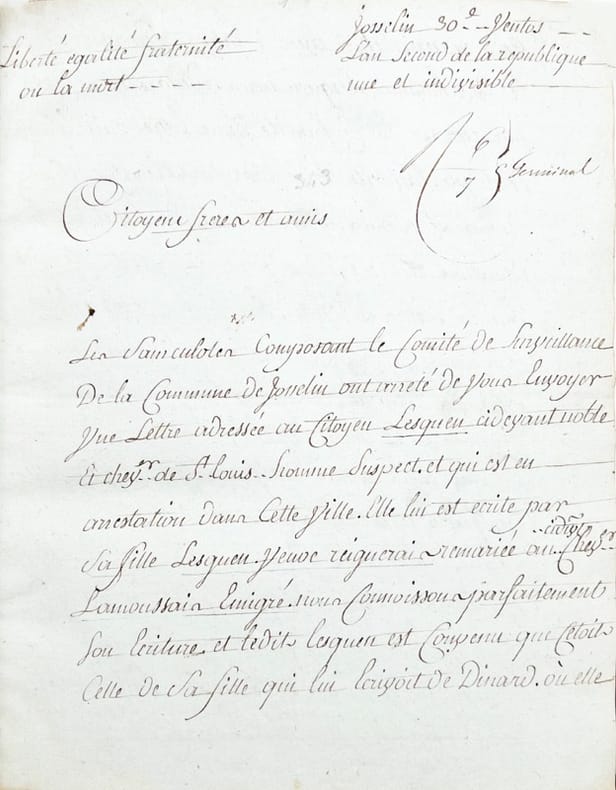 Liberté egalité fraternité
ou la mort
Josselin 30e Ventos
L'an Second de la republique
une et indivisible
6
7 Germinal
343
Citoyens freres et amis
Les Sansculotes Composant le Comité de Surveillance
De la Commune de Josselin ont arreté de vous Envoyer
Une Lettre adressée au Citoyen Lesquen cidevant noble
Et chevr. de St. Louis. homme Suspect. et qui est en
arrestation dans Cette Ville. Elle lui est ecrite par
Sa fille Lesquen. Veuve remariée au cidevt. Chevr.
Lamoussais Emigré. nous Connoissons parfaitement
Son Ecriture. et ledit lesquen est Convenu que C'etoit
Celle de Sa fille qui lui Ecrivoit de Dinard. où elle